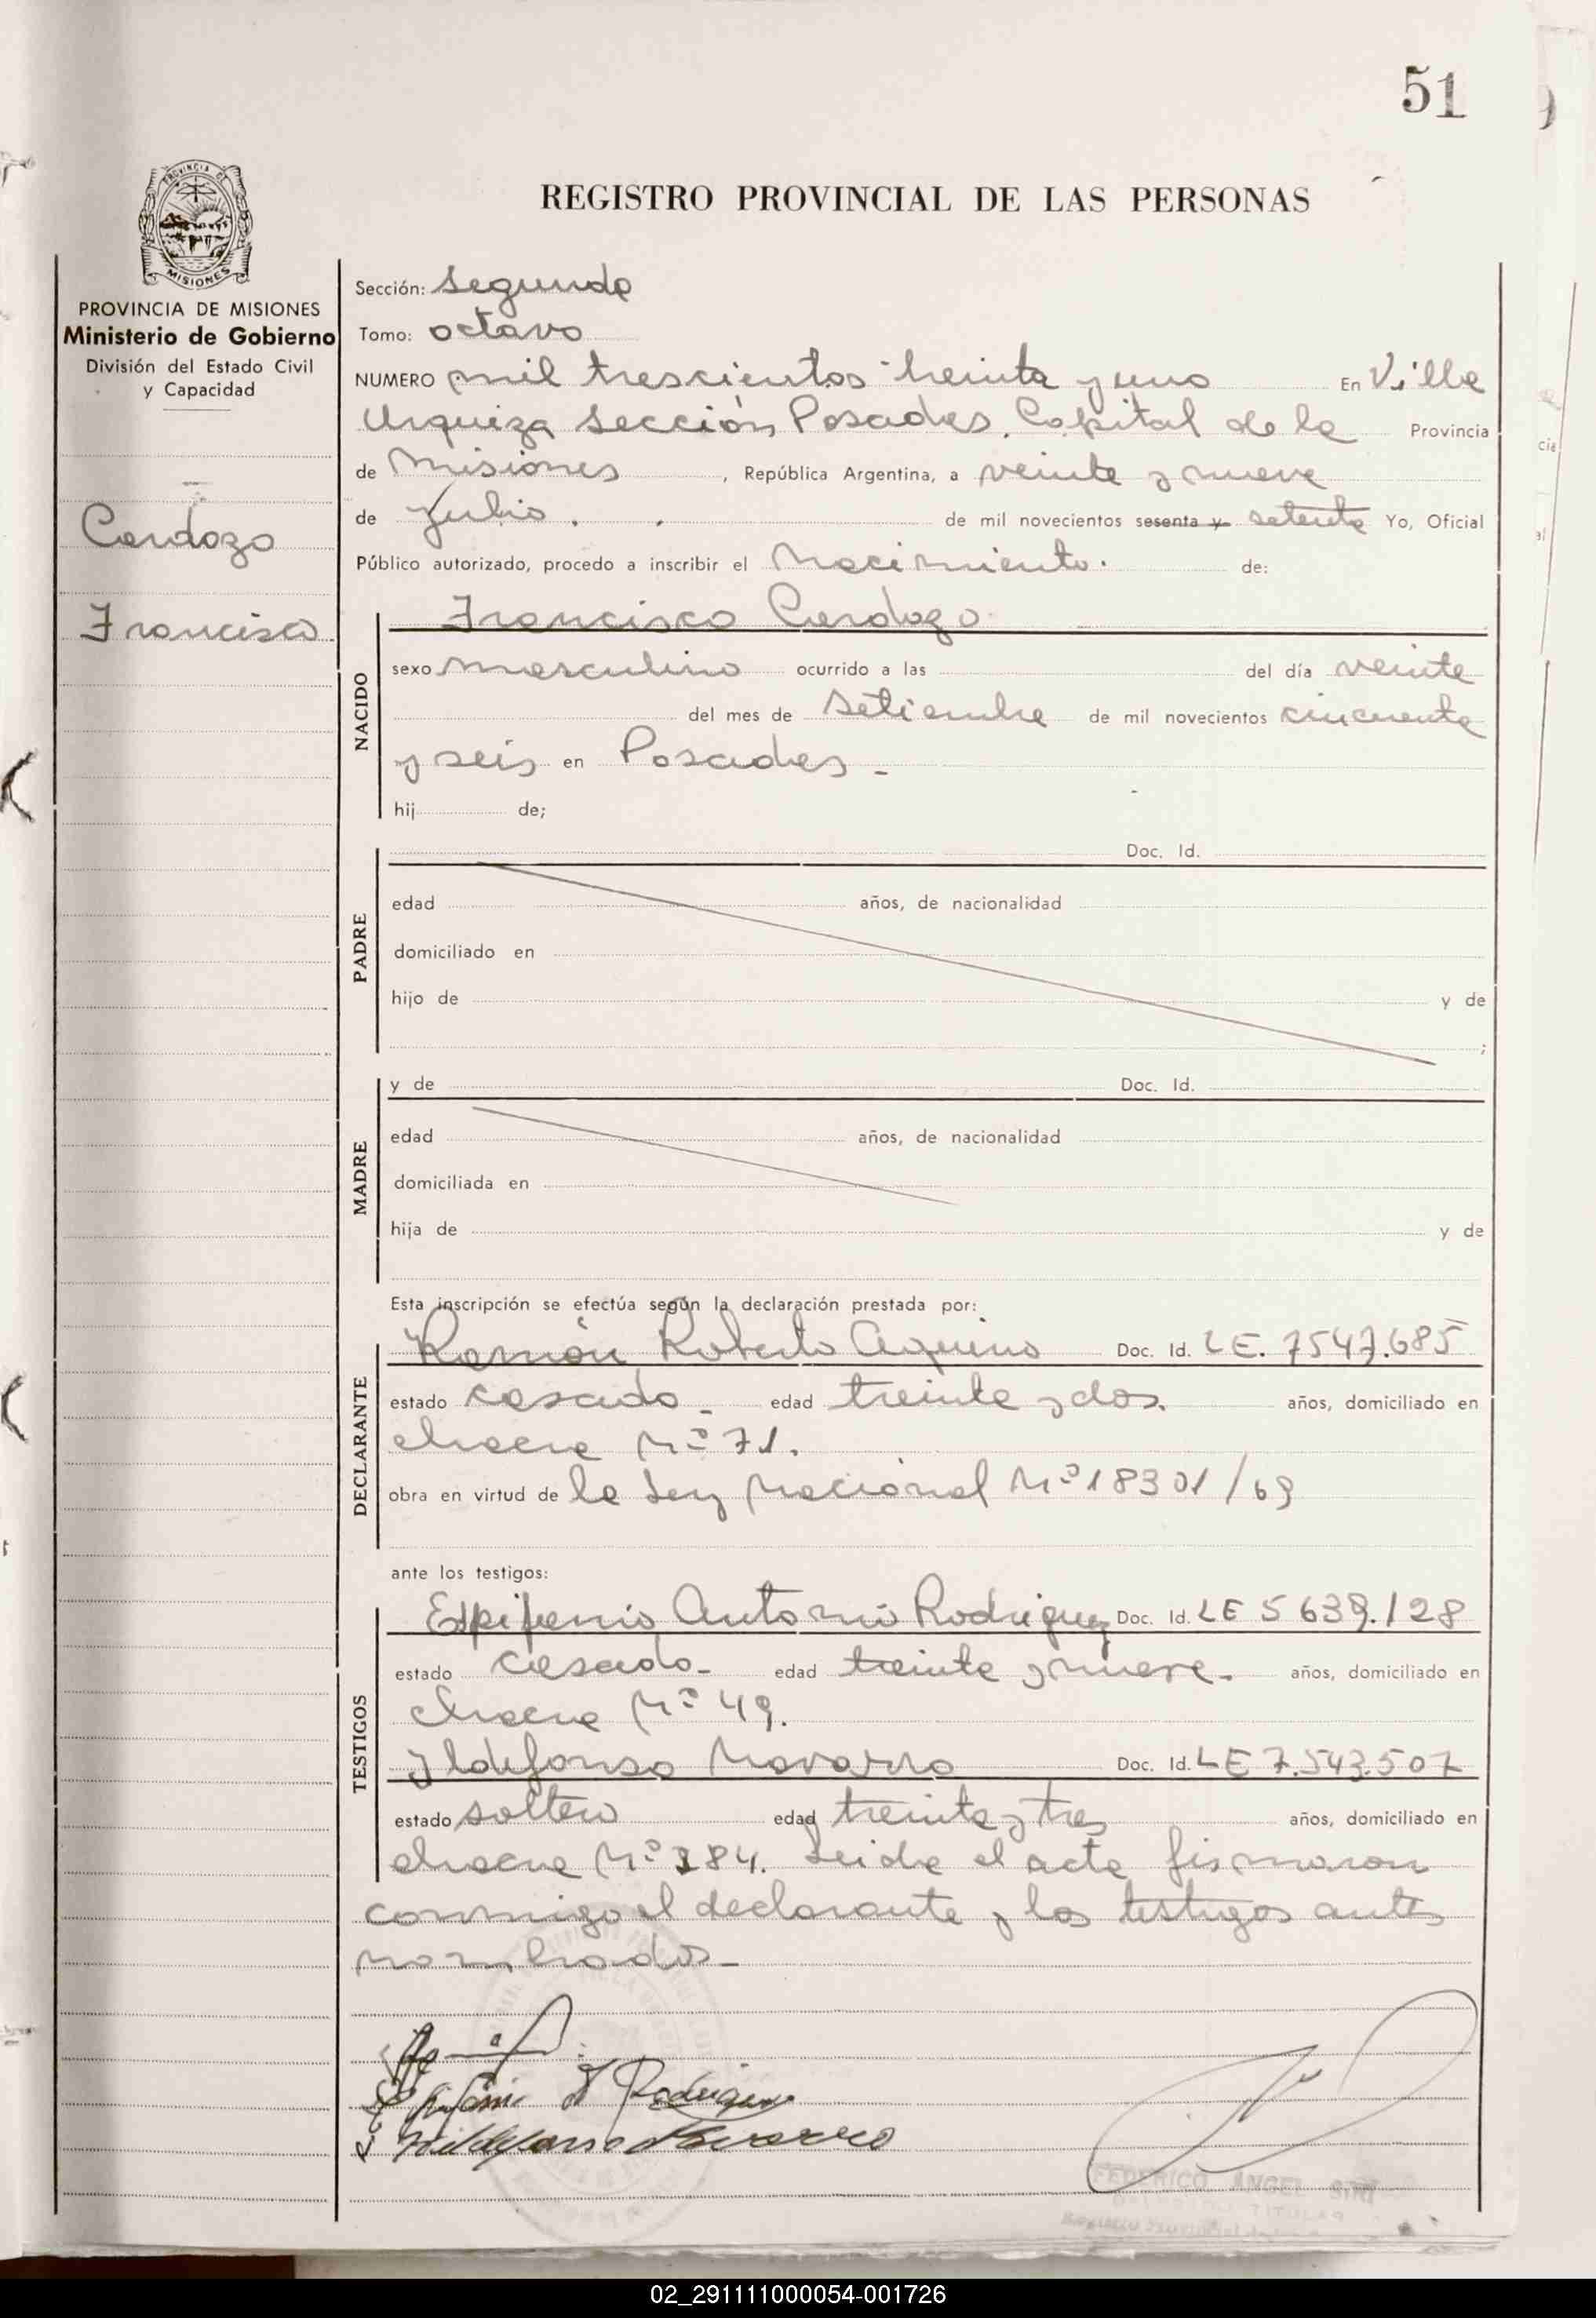 51
REGISTRO PROVINCIAL DE LAS PERSONAS
PROVINCIA DE
MISIONES
PROVINCIA DE MISIONES
Ministerio de Gobierno
División del Estado Civil
y Capacidad
Cardozo
Francisco
Sección: Segunda
Tomo: octavo
NUMERO mil trescientos treinta y uno En Villa
Urquiza Sección Posadas, Capital de la Provincia
de Misiones, República Argentina, a veinte y nueve
de Julio. de mil novecientos sesenta y setenta Yo, Oficial
Público autorizado, procedo a inscribir el Nacimiento. de:
NACIDO
Francisco Cardozo
sexo masculino ocurrido a las del día veinte
del mes de Setiembre de mil novecientos cincuenta
y seis en Posadas -
hij de;
PADRE
Doc. Id.
edad años, de nacionalidad
domiciliado en
hijo de y de
;
MADRE
y de Doc. Id.
edad años, de nacionalidad
domiciliada en
hija de y de
Esta inscripción se efectúa según la declaración prestada por:
DECLARANTE
Ramón Roberto Aquino Doc. Id. LE. 7547.685
estado casado - edad treinta y dos. años, domiciliado en
chacra Nº 71.
obra en virtud de la Ley Nacional Nº 18301/69
ante los testigos:
TESTIGOS
Epifanio Antonio Rodriguez Doc. Id. LE 5639.128
estado casado - edad treinta y nueve - años, domiciliado en
chacra Nº 49.
Ildefonso Navarro Doc. Id. LE 7.543.507
estado soltero edad treinta y tres años, domiciliado en
chacra Nº 184. Leida el acta firmaron
conmigo el declarante y los testigos antes
nombrados -
Epifanio A Rodriguez
Ildefonso Navarro
FEDERICO ANGEL
TITULAR
02_291111000054-001726